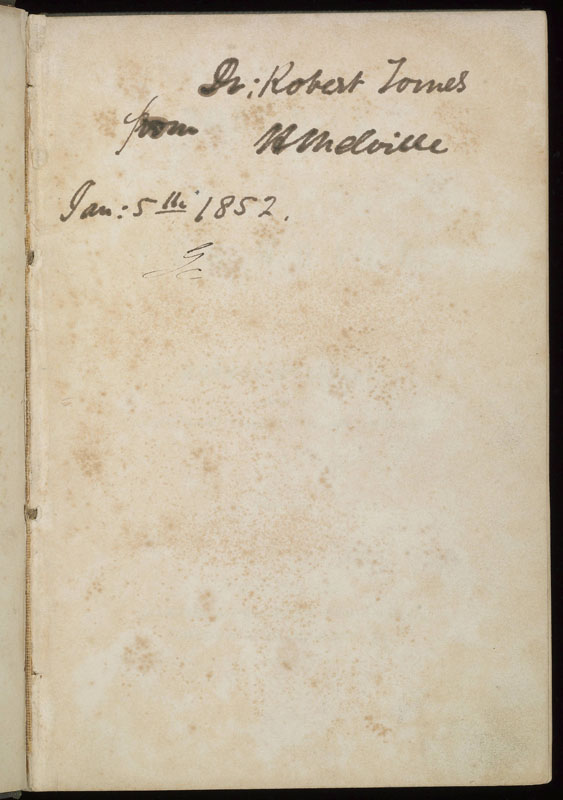 Dr: Robert Tomes
from H Melville
Jan: 5th 1852.